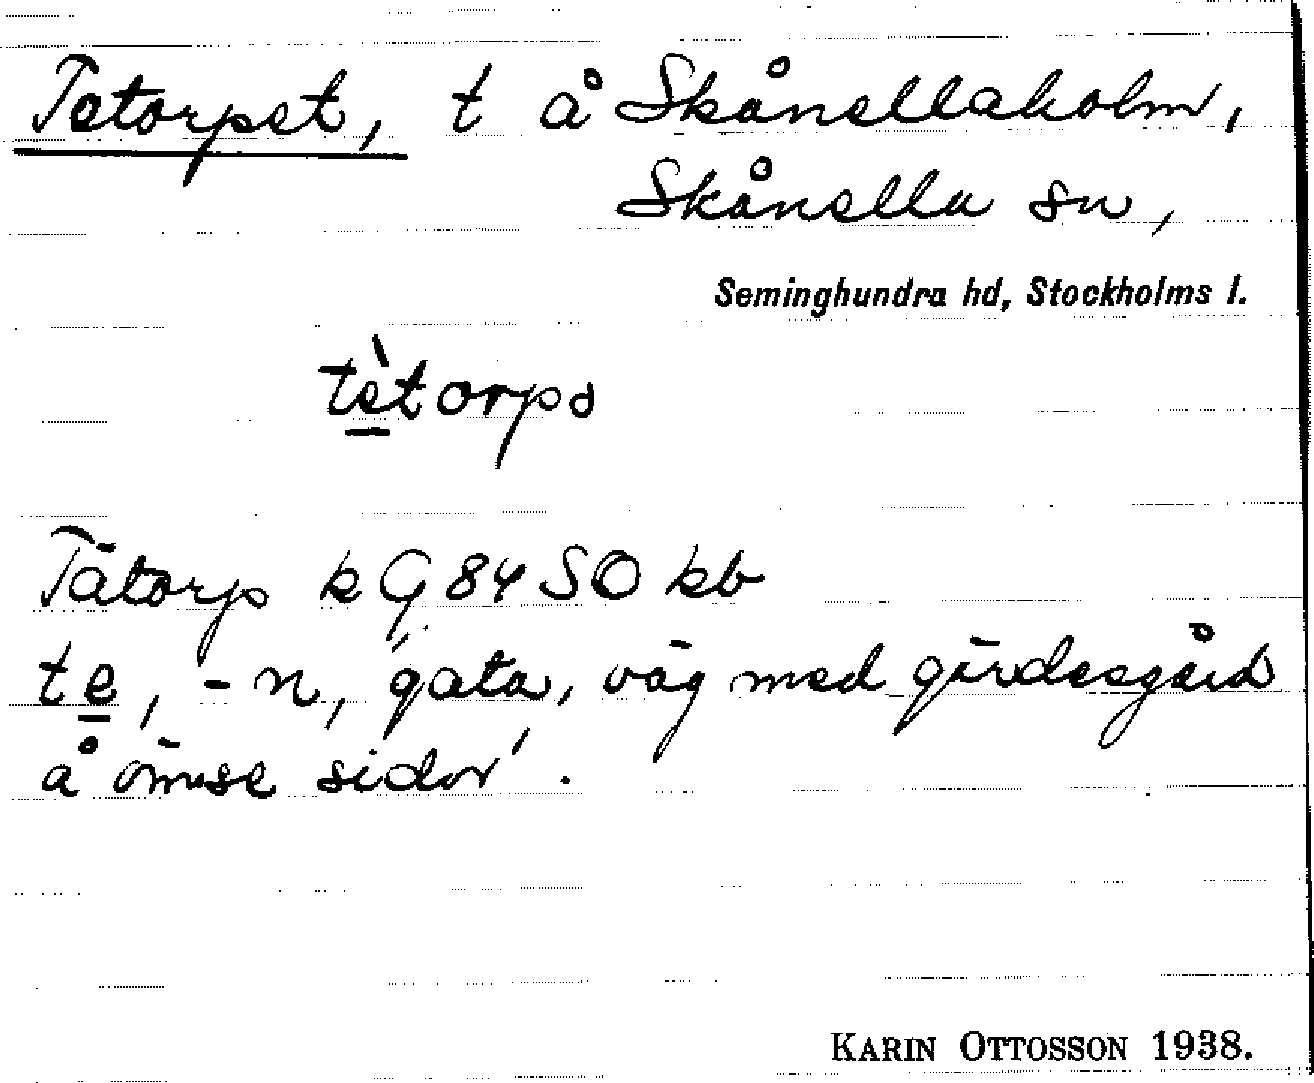 Tetorpet, t å Skånellaholm,
Skånella sn,
Seminghundra hd, Stockholms l.
tètorpə
Tätorp k G 84 SO kb
te, -n, "gata, väg med gärdesgård
å ömse sidor".
KARIN OTTOSSON 1938.